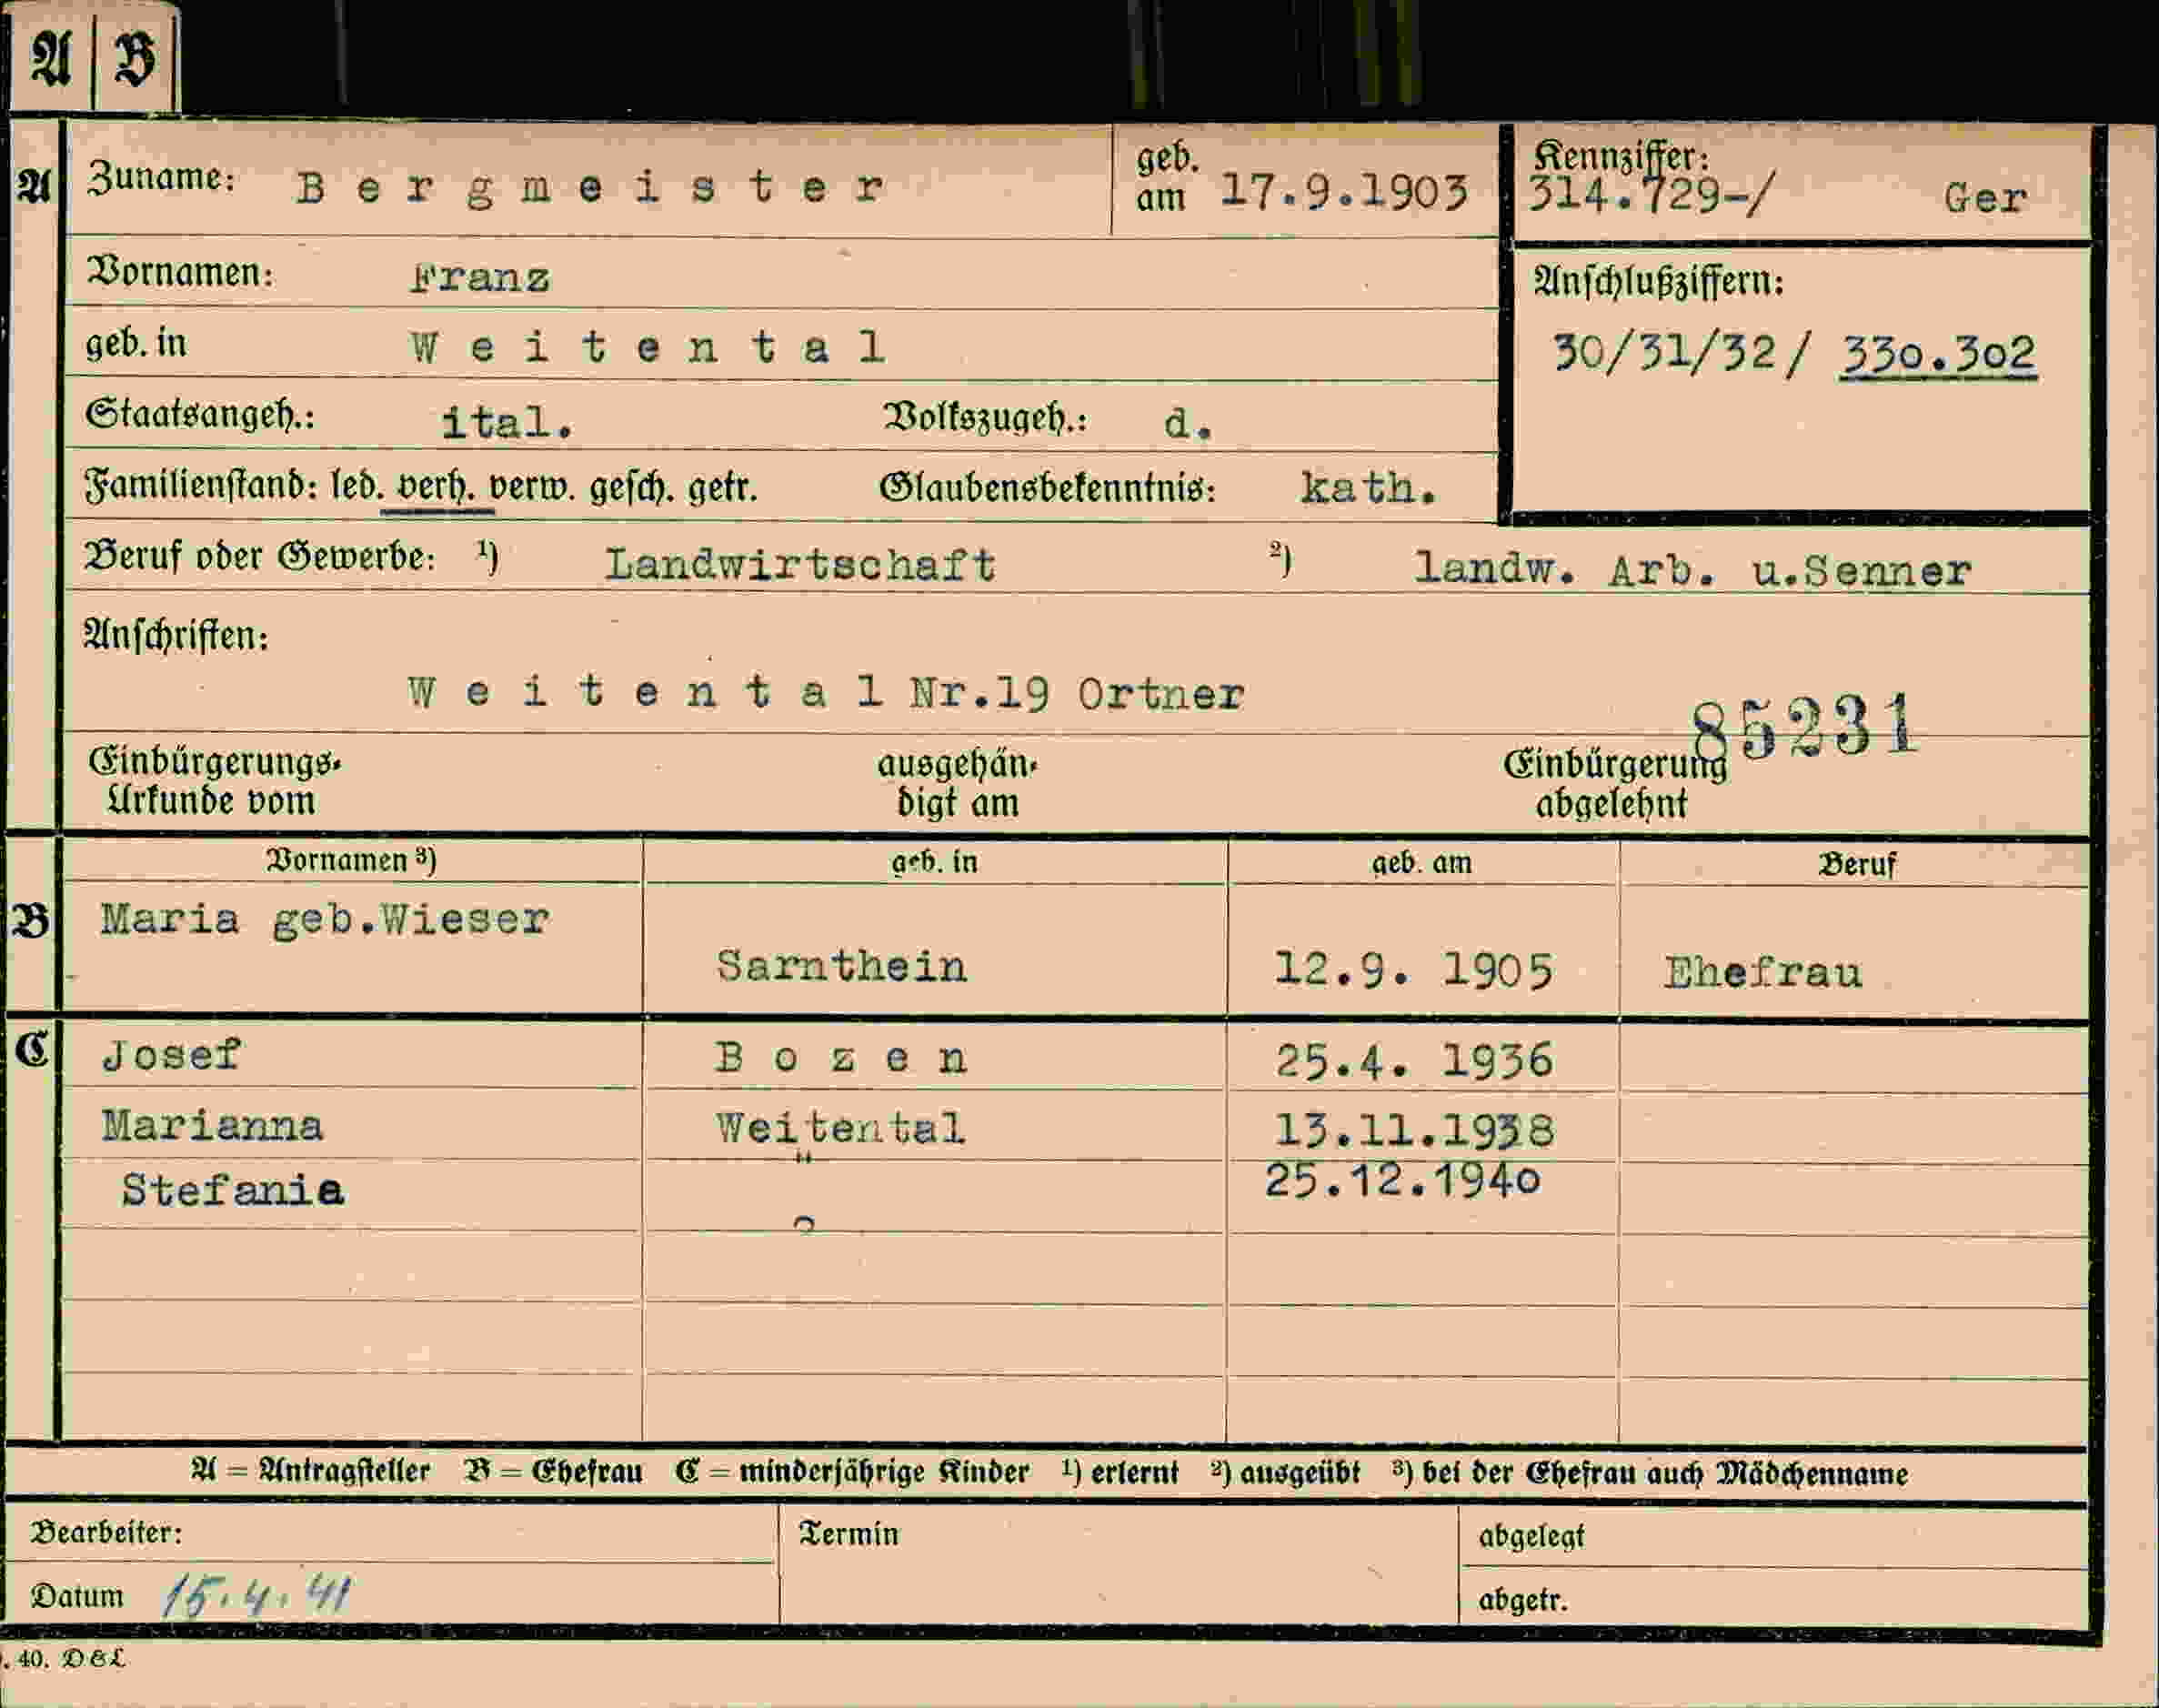 A B
A Zuname: Bergmeister geb. am 17.9.1903 Kennziffer: 314.729-/ Ger
Vornamen: Franz Anschlußziffern:
geb. in Weitental 30/31/32/ 330.302
Staatsangeh.: ital. Volkszugeh.: d.
Familienstand: led. verh. verw. gesch. getr. Glaubensbekenntnis: kath.
Beruf oder Gewerbe: 1) Landwirtschaft 2) landw. Arb. u.Senner
Anschriften:
Weitental Nr.19 Ortner
85231
Einbürgerungs- ausgehän- Einbürgerung
Urkunde vom digt am abgelehnt
Vornamen 3) geb. in geb. am Beruf
B Maria geb.Wieser
Sarnthein 12.9. 1905 Ehefrau
C Josef Bozen 25.4. 1936
Marianna Weitental 13.11.1938
Stefania " 25.12.1940
A = Antragsteller B = Ehefrau C = minderjährige Kinder 1) erlernt 2) ausgeübt 3) bei der Ehefrau auch Mädchenname
Bearbeiter: Termin abgelegt
Datum 15.4.41 abgetr.
. 40. D&L